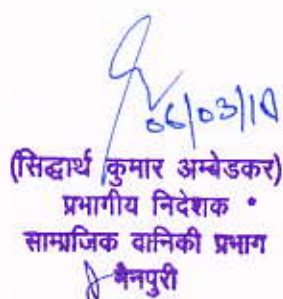 06/03/18
(सिद्धार्थ कुमार अम्बेडकर)
प्रभागीय निदेशक
सामाजिक वानिकी प्रभाग
मैनपुरी